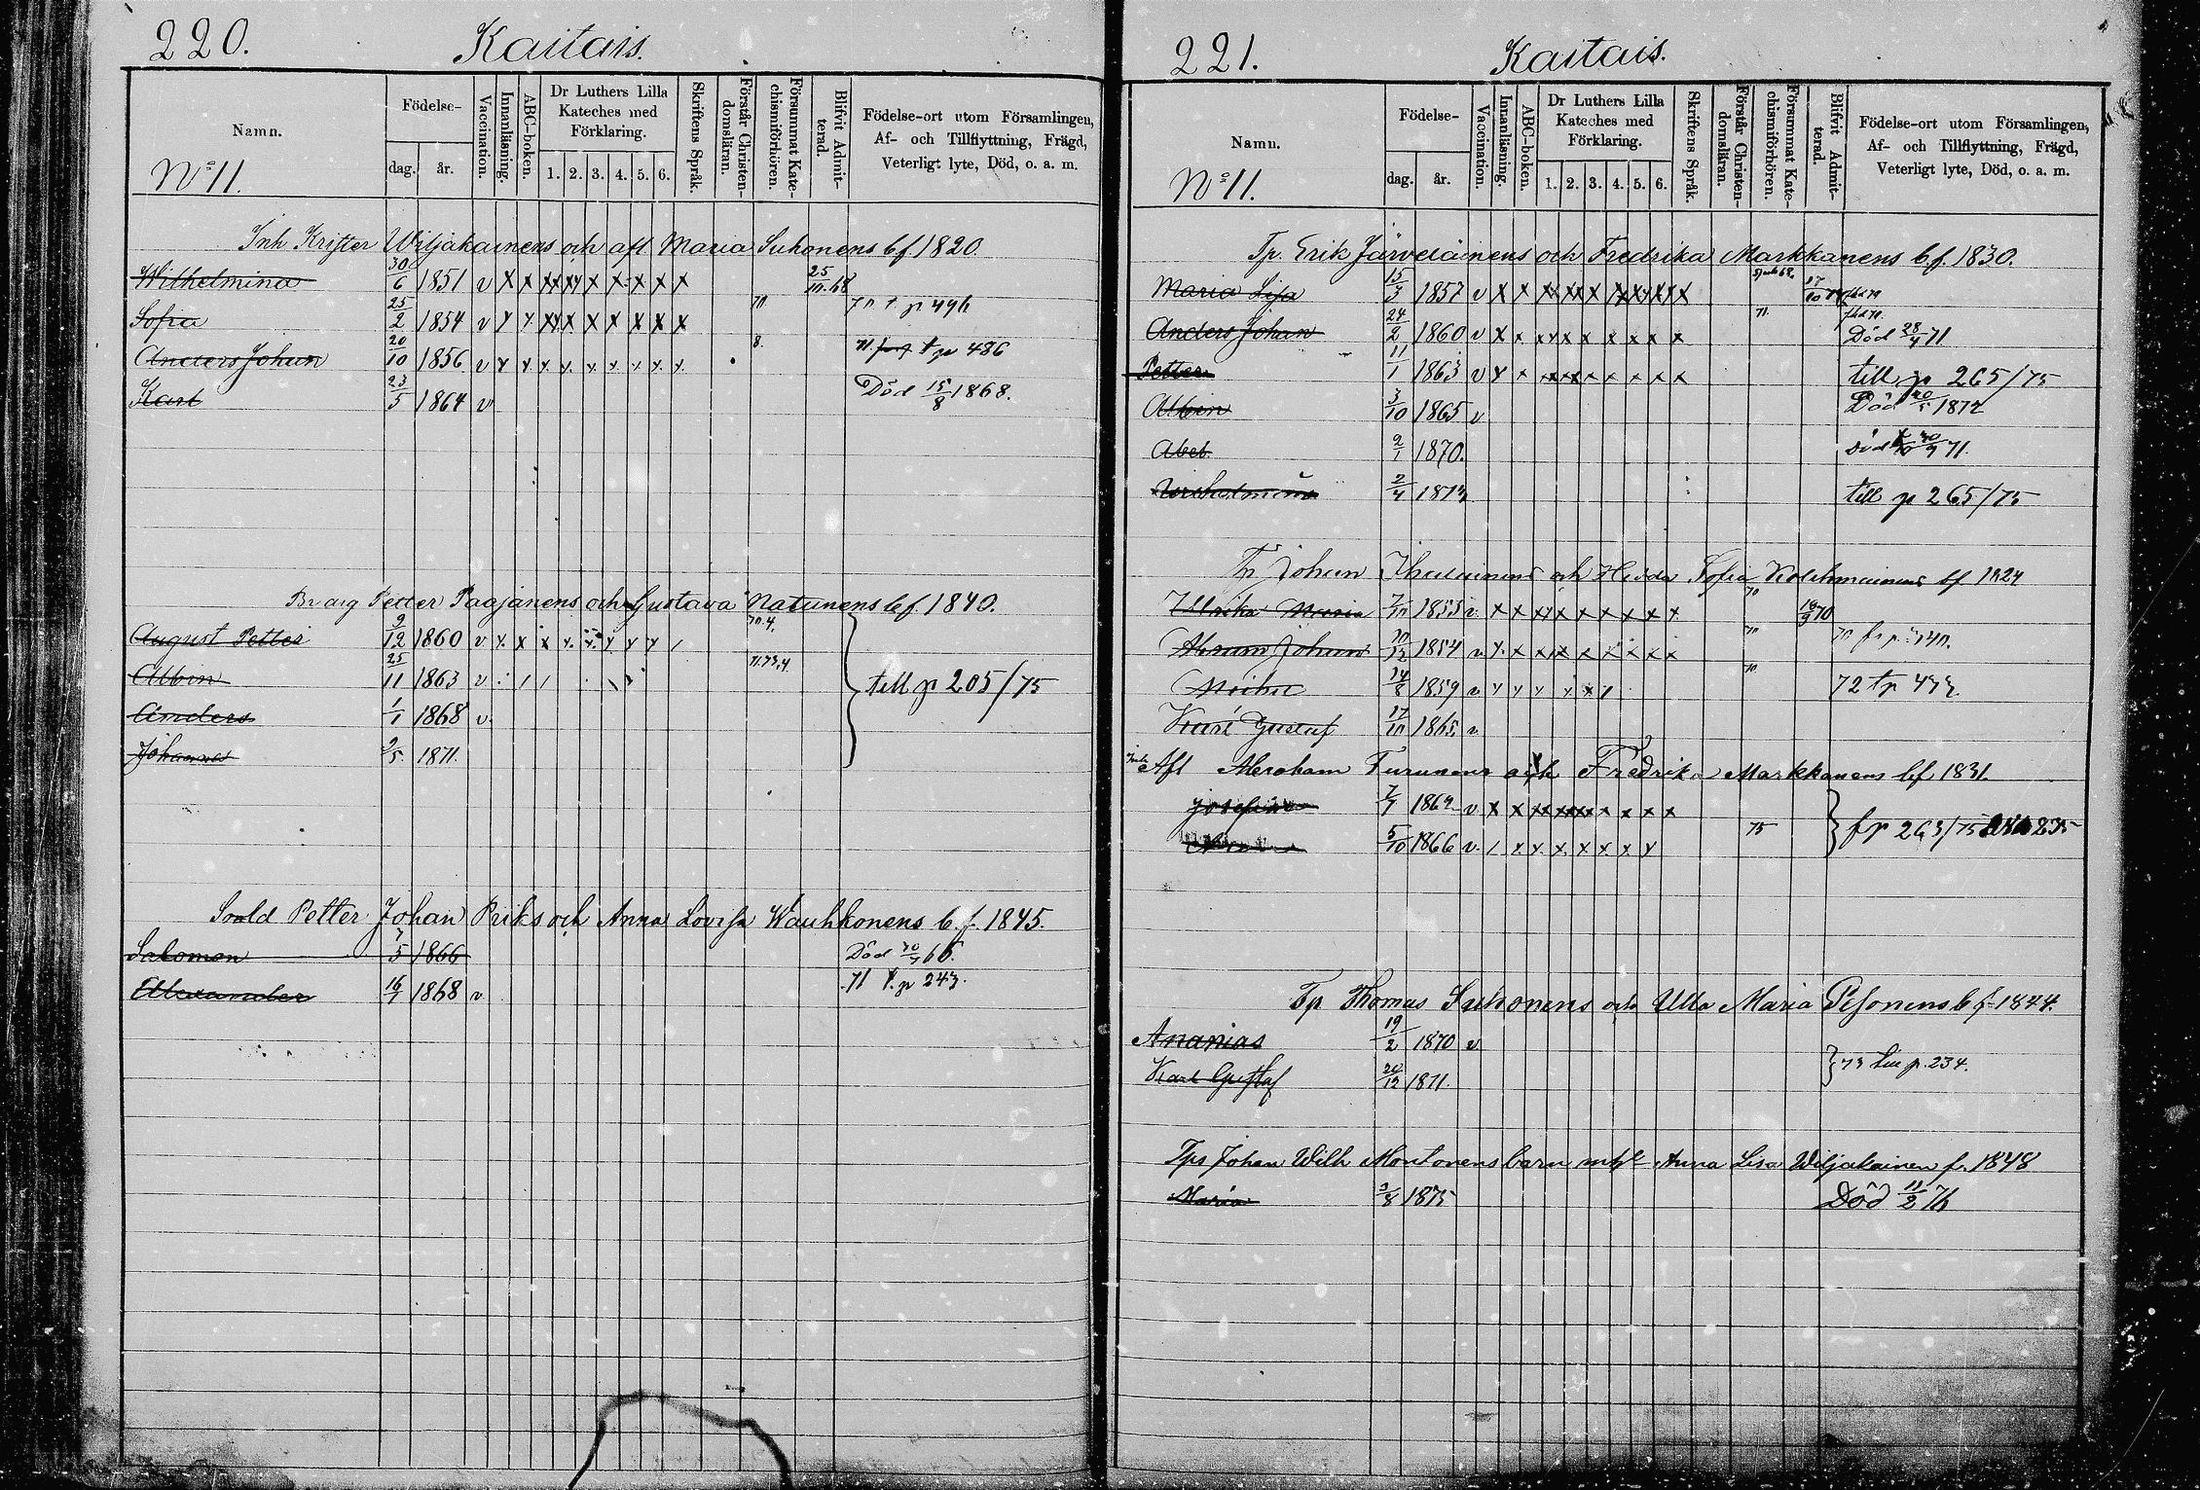 220.
Kaitais.
Namn.
Födelse-
dag.
år.
Vaccination.
Innanläsning.
ABC-boken.
Dr Luthers Lilla
Kateches med
Förklaring.
1. 2. 3. 4. 5. 6.
Skriftens Språk.
Förstår Christen-
domsläran.
Försummat Kate-
chismiförhören.
Blifvit Admit-
terad.
Födelse-ort utom Församlingen,
Af- och Tillflyttning, Frägd,
Veterligt lyte, Död, o. a. m.
No 11.
Inh Krister Wiljakainens och afl Maria Suhonens b.f. 1820.
Wilhelmina 30/6 1851 v x x x x x x x x x x 25/10 68
Sofia 25/2 1854 v x x x x x x x x x x 70 70 t p 496
Anders Johan 20/10 1856 v x x x x x x x x x 8. 71 t p 486
Karl 23/5 1864 v Död 15/8 1868.
Petter Paajanens och Gustava Natunens b.f. 1840.
August Petter 9/12 1860 v x x x x x x x x 70.4.
Albin 25/11 1863 v till p 205/75
Anders 1/1 1868 v
Johannes 9/5 1871.
Petter Johan Priks och Anna Lovisa Wauhkonens b.f. 1845.
Salomon 7/5 1866 Död
Alexander 16/1 1868 v 71 t. p 243.
221.
Kaitais.
Namn.
Födelse-
dag.
år.
Vaccination.
Innanläsning.
ABC-boken.
Dr Luthers Lilla
Kateches med
Förklaring.
1. 2. 3. 4. 5. 6.
Skriftens Språk.
Förstår Christen-
domsläran.
Försummat Kate-
chismiförhören.
Blifvit Admit-
terad.
Födelse-ort utom Församlingen,
Af- och Tillflyttning, Frägd,
Veterligt lyte, Död, o. a. m.
No 11.
Tp. Erik Järveläinens och Fredrika Markkanens b.f. 1830.
Maria Lisa 15/3 1857 v x x x x x x x x x x
Anders Johan 24/2 1860 v x x x x x x x x x 71. Död 28/4 71
Petter 11/1 1863 v x x x x x x x x x till p 265/75
Albin 3/10 1865 v Död 20/5 1872
Abel 2/1 1870. död 30/9 71.
2/4 1873 till p 265/75
Tp Johan och Hedda Sofia Kolehmainens bf 1824
Ulrika Maria 7/10 1853 v. x x x x x x x x x 70 18/9 70
Abram Johan 1854 v. x x x x x x x x 70
14/8 1859 v x x x x x 70 72 t p
Karl Gustaf 17/10 1865 v
Afl Abraham Turunens och Fredrika Markkanens b.f. 1831.
Josefina 7/7 1862 v x x x x x x x x x
5/10 1866 v. x x x x x x x 75 f p 263/75
Tp Thomas Suhonens och Ulla Maria Pesonens b.f. 1844.
Ananias 19/2 1870 v
Karl Gustaf 20/12 1871. 73 p. 234.
Tps Johan Wilh Montonens barn Anna Lisa Wiljakainen f. 1848
Maria 3/8 1875 Död 11/2 76